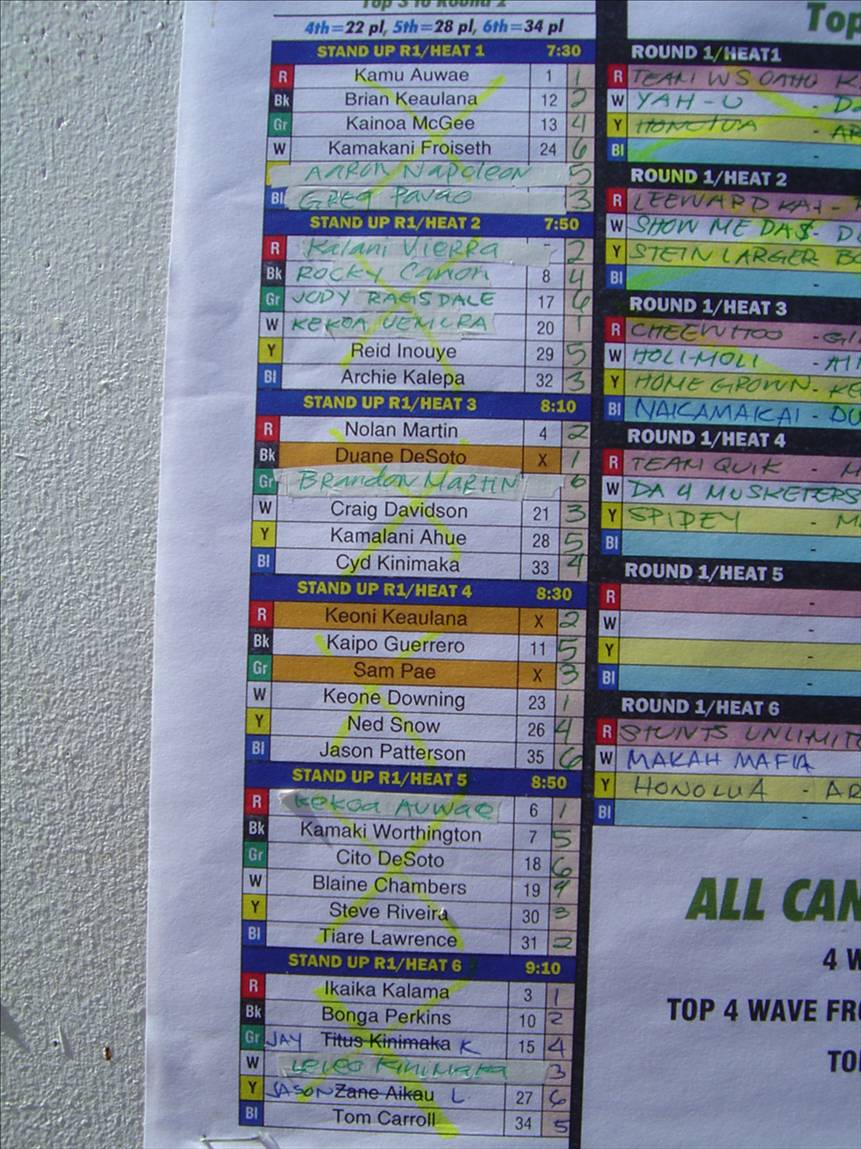 Top 3 to Round 2
4th=22 pl, 5th=28 pl, 6th=34 pl
STAND UP R1/HEAT 1 7:30
R Kamu Auwae 1 1
Bk Brian Keaulana 12 2
Gr Kainoa McGee 13 4
W Kamakani Froiseth 24 6
Aaron Napoleon 5
Bl Greg Pavao 3
STAND UP R1/HEAT 2 7:50
R Kalani Vierra 2
Bk ROCKY Canon 8 4
Gr JODY RAGSDALE 17 6
W KEKOA UEMURA 20 1
Y Reid Inouye 29 5
Bl Archie Kalepa 32 3
STAND UP R1/HEAT 3 8:10
R Nolan Martin 4 2
Bk Duane DeSoto X 1
Gr Brandon Martin 6
W Craig Davidson 21 3
Y Kamalani Ahue 28 5
Bl Cyd Kinimaka 33 4
STAND UP R1/HEAT 4 8:30
R Keoni Keaulana X 2
Bk Kaipo Guerrero 11 5
Gr Sam Pae X 3
W Keone Downing 23 1
Y Ned Snow 26 4
Bl Jason Patterson 35 6
STAND UP R1/HEAT 5 8:50
R Kekoa Auwae 6 1
Bk Kamaki Worthington 7 5
Gr Cito DeSoto 18 6
W Blaine Chambers 19 4
Y Steve Riveira 30 3
Bl Tiare Lawrence 31 2
STAND UP R1/HEAT 6 9:10
R Ikaika Kalama 3 1
Bk Bonga Perkins 10 2
Gr JAY Titus Kinimaka K 15 4
W Kinimaka 3
Y JASON Zane Aikau L 27 6
Bl Tom Carroll 34 5
Top
ROUND 1/HEAT1
R TEAM WS OAHU K
W YAH-U - D
Y HONOLUA - AR
Bl -
ROUND 1/HEAT 2
R LEEWARD KAI -
W SHOW ME DA$ - D
Y STEIN LARGER BO
Bl -
ROUND 1/HEAT 3
R CHEEWHOO - GI
W HOLI-MOLI - AI
Y HOME GROWN - KE
Bl NAKAMAKAI - DU
ROUND 1/HEAT 4
R TEAM QUIK - M
W DA 4 MUSKETERS
Y SPIDEY - M
Bl -
ROUND 1/HEAT 5
R -
W -
Y -
Bl -
ROUND 1/HEAT 6
R STUNTS UNLIMIT
W MAKAH MAFIA
Y HONOLUA - AR
Bl -
ALL CAN
4 W
TOP 4 WAVE FR
TO